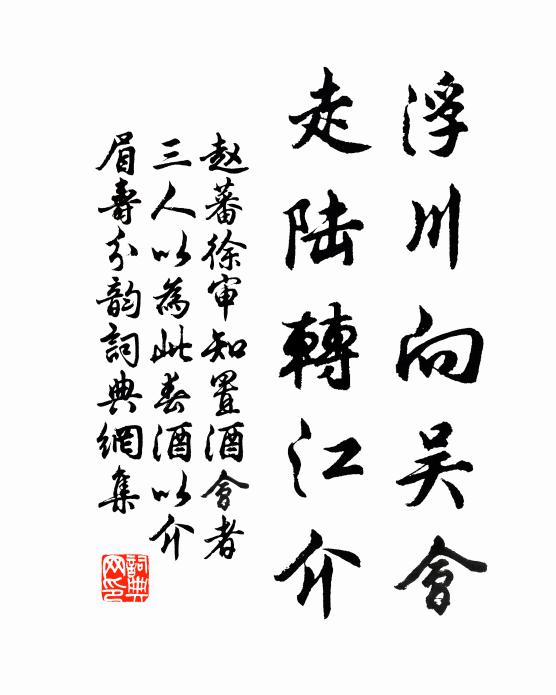 浮川向吴會
走陆轉江介
赵蕃徐审知置酒會者
三人以為此春酒以介
眉壽分韵詞典網集
詞典网印